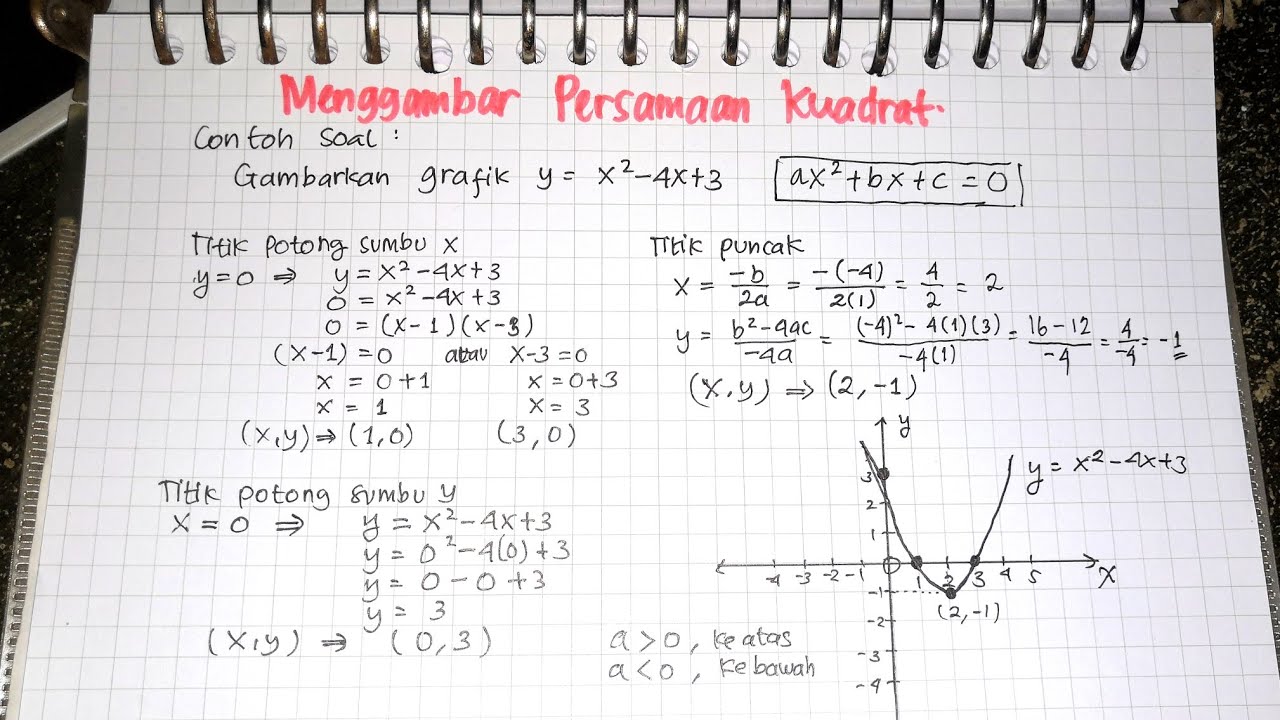 Menggambar Persamaan Kuadrat.
Contoh soal :
Gambarkan grafik y = x²-4x+3
ax²+bx+c=0
Titik potong sumbu x
y=0 ⇒ y = x²-4x+3
0 = x²-4x+3
0 = (x-1)(x-3)
(x-1)=0 atau x-3=0
x = 0+1 x = 0+3
x = 1 x = 3
(x,y)⇒(1,0) (3,0)
Titik potong sumbu y
x=0 ⇒ y = x²-4x+3
y = 0²-4(0)+3
y = 0-0+3
y = 3
(x,y) ⇒ (0,3)
Titik puncak
x = -b/2a = -(-4)/2(1) = 4/2 = 2
y = b²-4ac/-4a = (-4)²-4(1)(3)/-4(1) = 16-12/-4 = 4/-4 = -1
(x,y) ⇒ (2,-1)
y
y = x²-4x+3
3
2
1
-4 -3 -2 -1 0 1 2 3 4 5 x
-1
(2,-1)
-2
-3
-4
a>0, ke atas
a<0, ke bawah